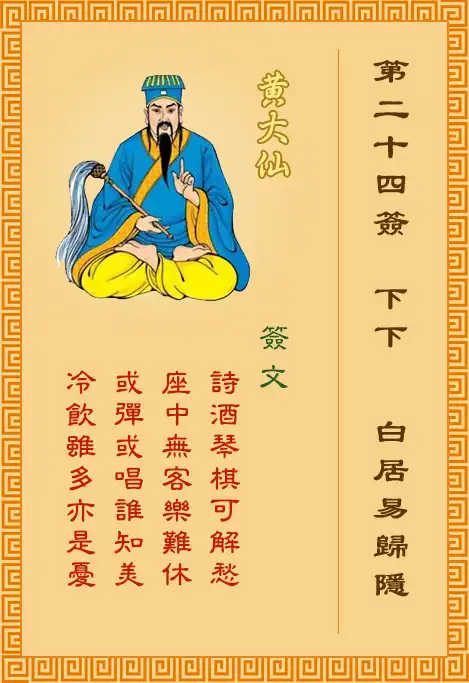 第二十四簽 下下 白居易歸隱
黃大仙
簽文
詩酒琴棋可解愁
座中無客樂難休
或彈或唱誰知美
冷飲雖多亦是憂